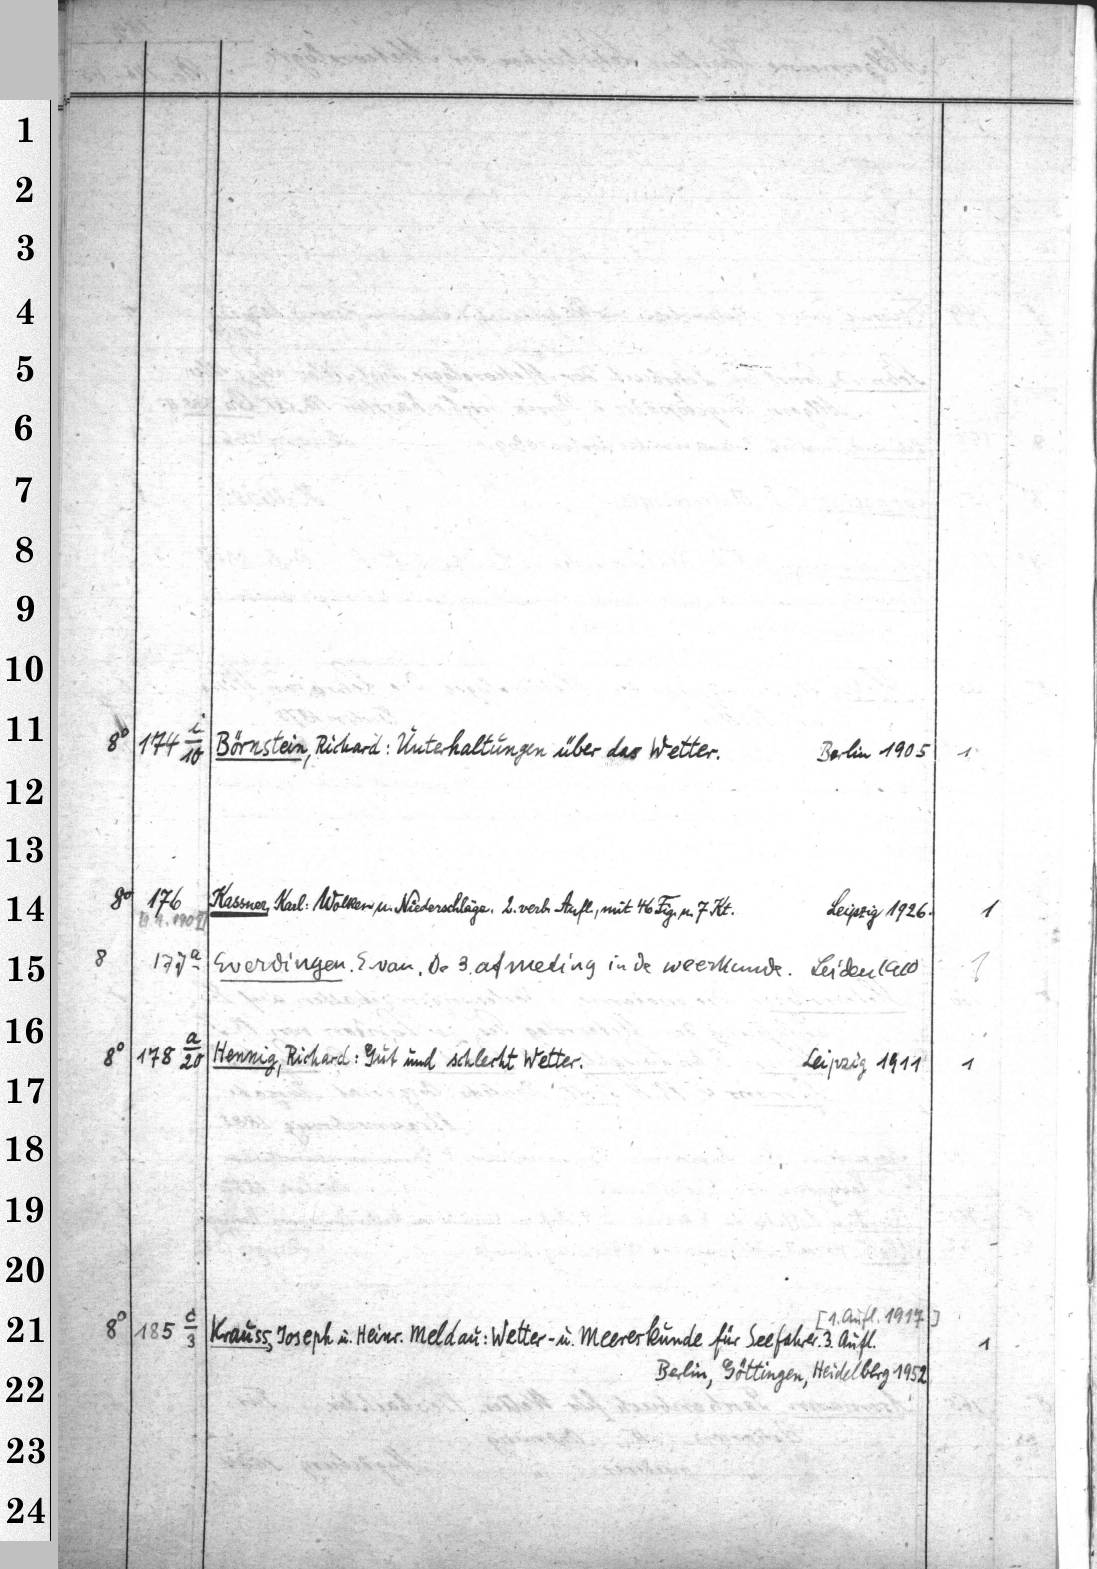 1
2
3
4
5
6
7
8
9
10
11
8° 174 i/10 Börnstein, Richard: Unterhaltungen über das Wetter. Berlin 1905 1
12
13
14
8° 176 Kassner, Karl: Wolken u. Niederschläge. 2. verb. Aufl., mit 46 Fig. u. 7 Kt. Leipzig 1926. 1
15
8 177 a Everdingen. E van. De 3. afmeting in de weerkunde. Leiden 1910 1
16
8° 178 a/20 Hennig, Richard: Gut und schlecht Wetter. Leipzig 1911 1
17
18
19
20
[1. Aufl. 1917]
21
8° 185 c/3 Krauss, Joseph u. Heinr. Meldau: Wetter- u. Meereskunde für Seefahrer. 3. Aufl. 1
Berlin, Göttingen, Heidelberg 1952
22
23
24